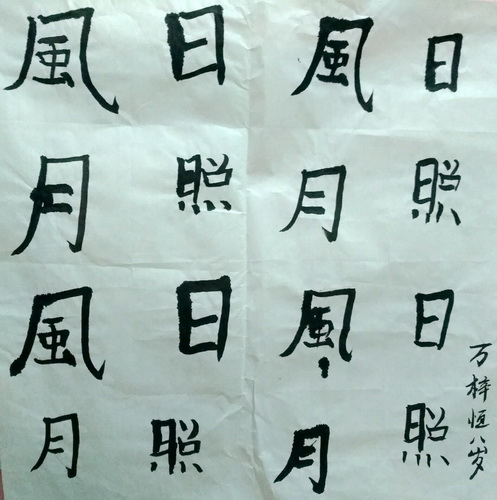 日照日照
風月風月
日照日照
風月風月
万梓恒八岁